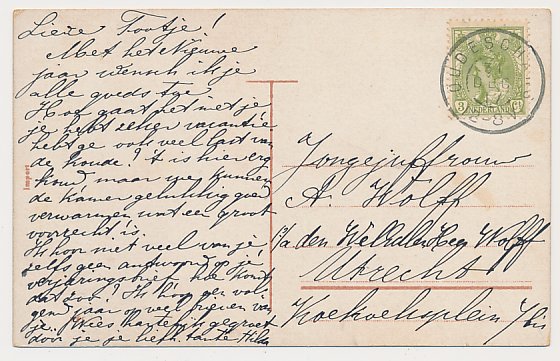 Lieve Tootje!
Met het Nieuwe
jaar wensch ik je
alle goeds toe.
Hoe gaat het met je
je hebt zeker vacantie
hebt ge ook veel last van
de koude? 't is hier erg
koud, maar we kunnen
de kamer gelukkig goed
verwarmen wat een groot
voorrecht is.
Ik hoor niet veel van je
zelfs geen antwoord op je
verjaringsbrief hoe komt
dat zoo? Ik hoop een vol-
gend jaar op wat brieven van
je. Wees hartelijk gegroet
door je je liefh. tante
Import
OUDESCH
3 ct
NEDERLAND
Jongejuffrouw
A. Wolff
p/a den WelEdelen Heer Wolff
Utrecht
Koekoeksplein 1 bis